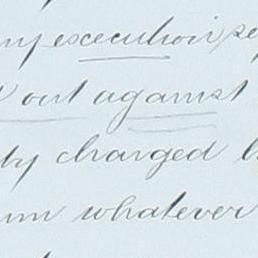 ny execution se
out against
ty charged b
um whatever